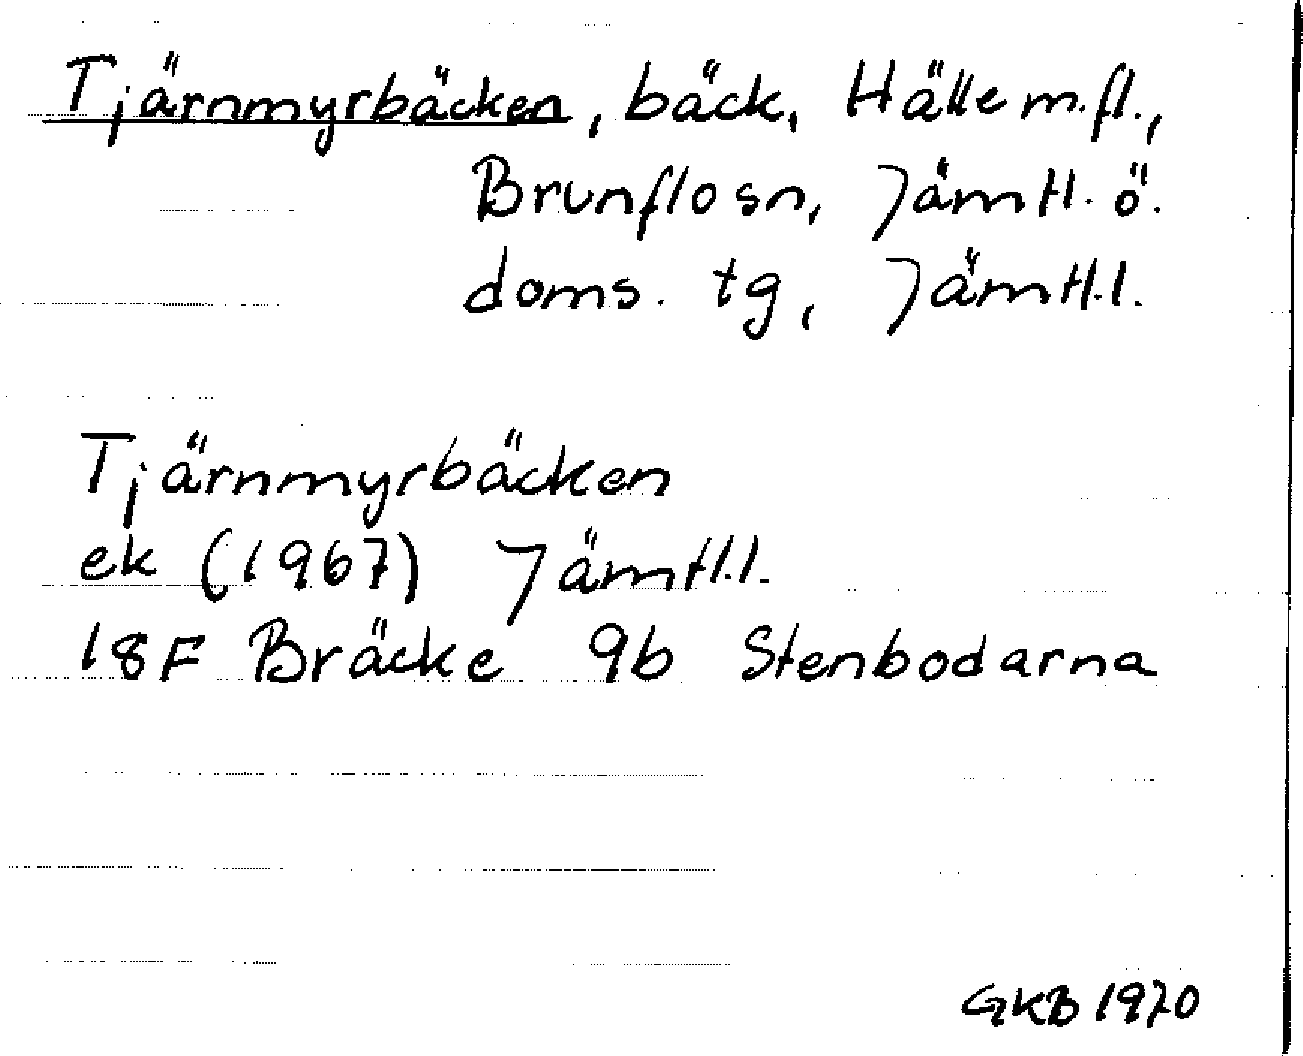 Tjärnmyrbäcken, bäck, Hälle m.fl.,
Brunflo sn, Jämtl. ö.
doms. tg, Jämtl.l.
Tjärnmyrbäcken
ek (1967) Jämtl.l.
18F Bräcke 9b Stenbodarna
GKB 1970